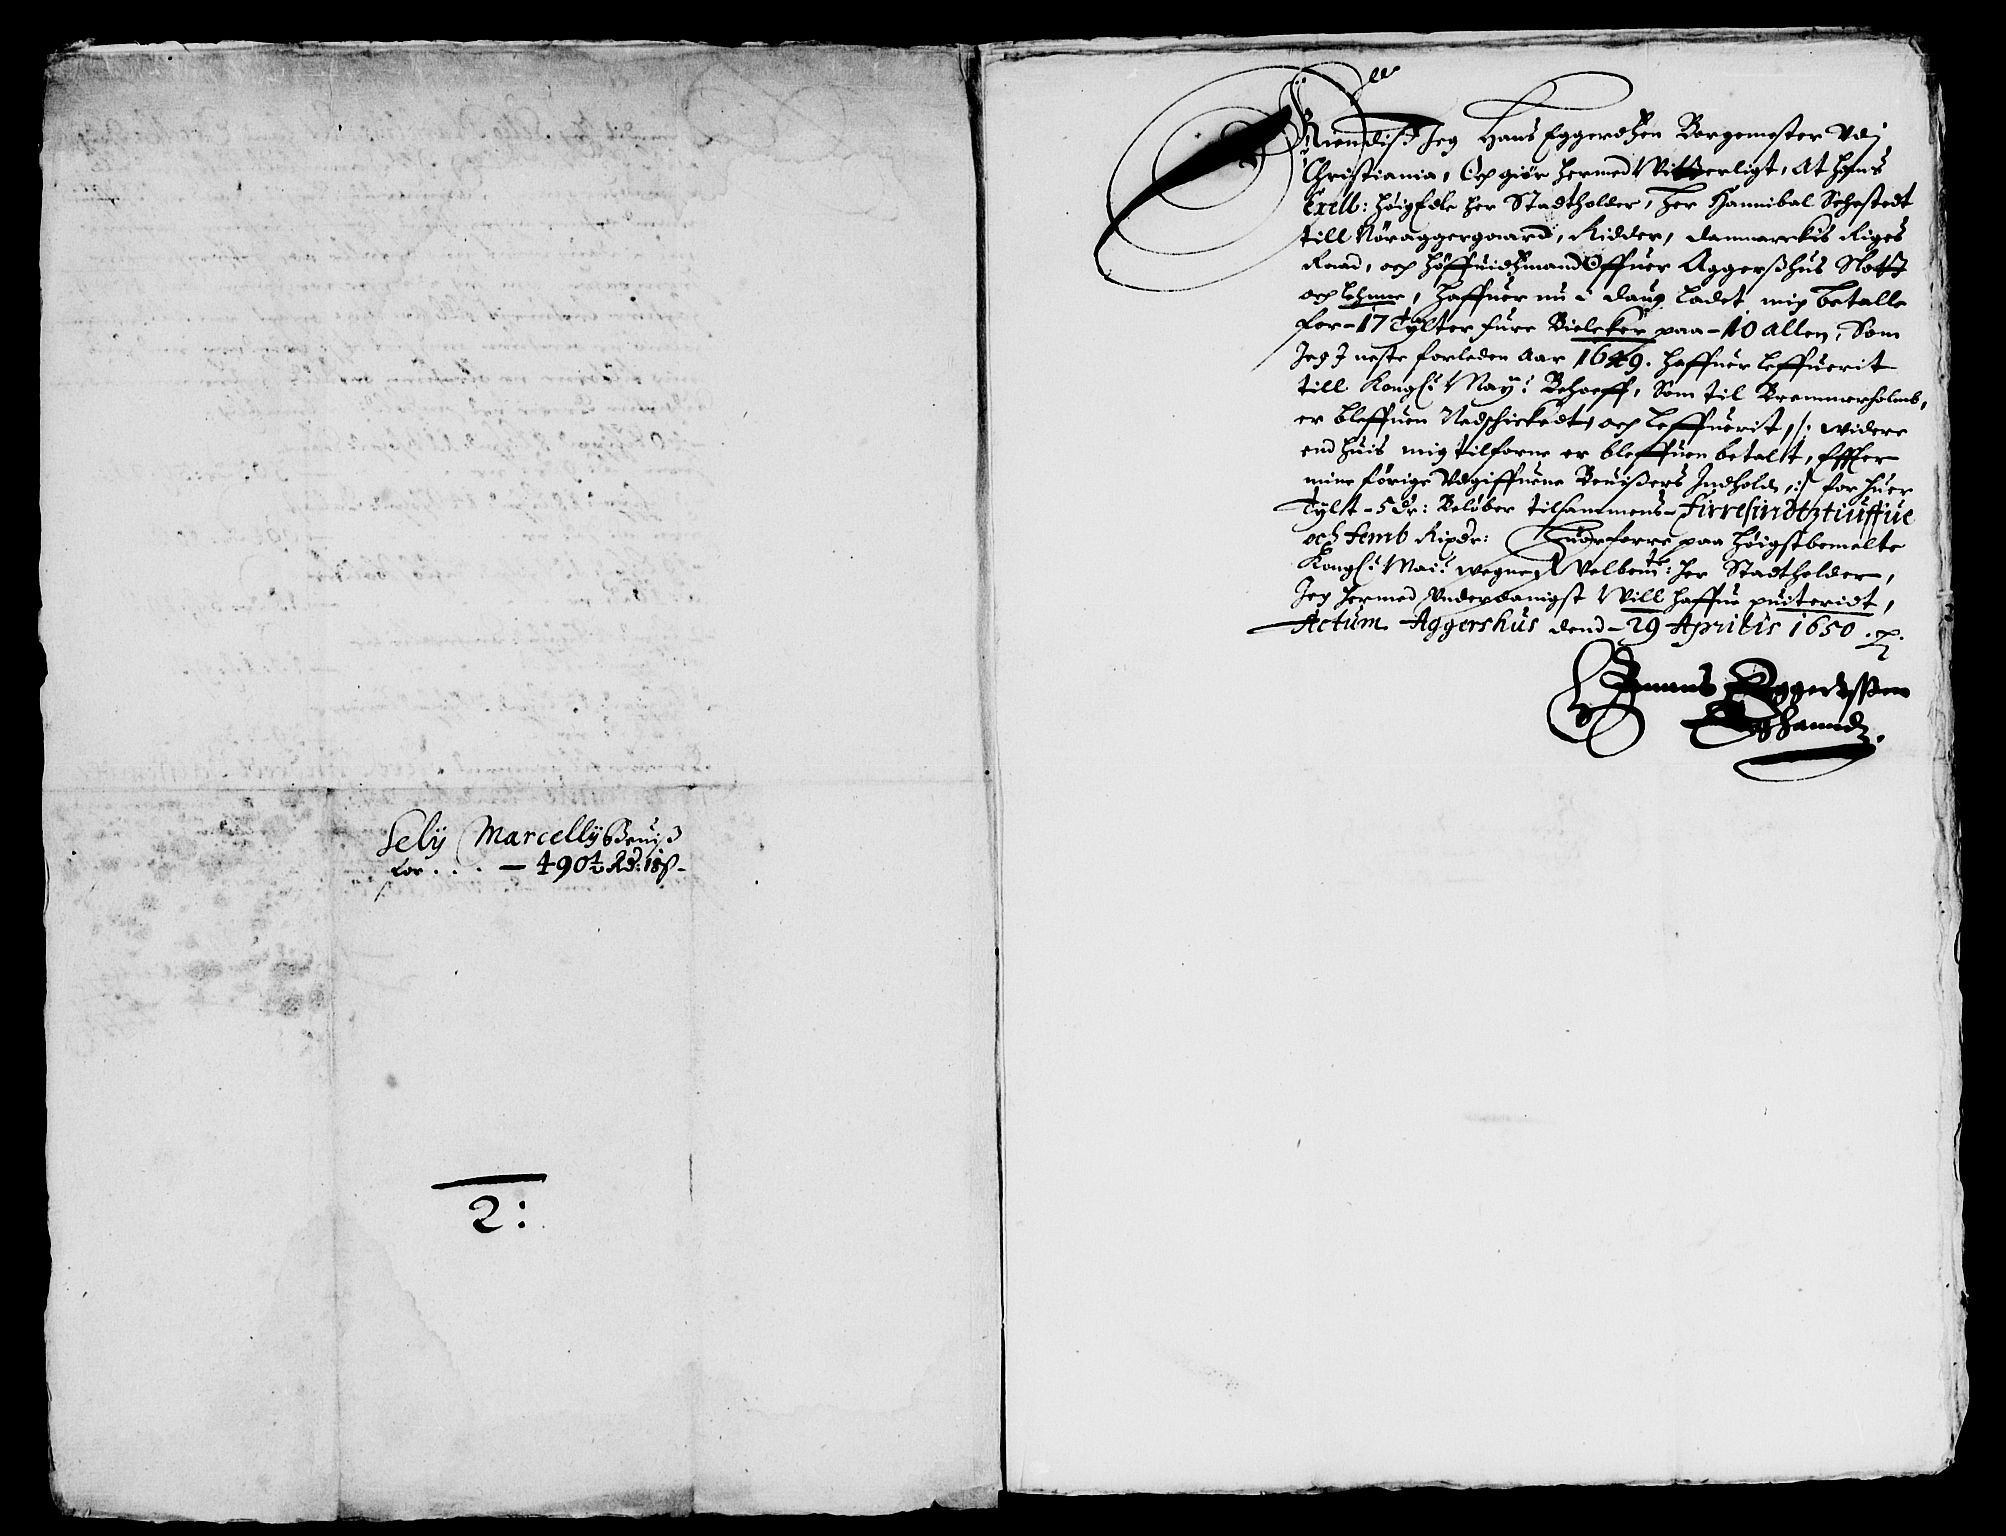 Sely Marcellÿ Beuiß
for . . . — 490½ Rd: 18ß
2:
Kiendis Jeg Hans Eggerdßen Borgemester Vdj
Christiania, Och giør hermed Vitterligt, At hans
Excell: høigEdle her Stadtholder, Her Hannibal Sehestedt
till Nøraggergaard, Ridder, Danmarckis Riges
Raad, och høffuidtzmand Offuer Aggerßhus Slott
och Lehnne, haffuer nu i daug ladet mig betalle
for - 17 Tylter fure Bielcker paa - 10 Allen, Som
Jeg J neste forleden Aar 1649. haffuer leffuerit
till Kongl: May: Behoeff, Som til Bremmerholmb,
er bleffuen Nedschickedt, och leffuerit, /: widere
end huis mig tilforne er bleffuen betalt, Effter
mine førige Vdgiffuene Beuißers Jndhold, :/ for huer
Tylt - 5 dr: Beløber tilsammens - Firresindtztiuffue
och femb Rixdr: Huorforre paa høigstbemelte
Kongl: Mai: wegne, Velbemte: her Stadtholder,
Jeg hermed Vnderdanigst Will haffue quiteridt,
Actum Aggershus dend - 29 Aprilis 1650.
Hanns Eggertssen
Eghanndt.